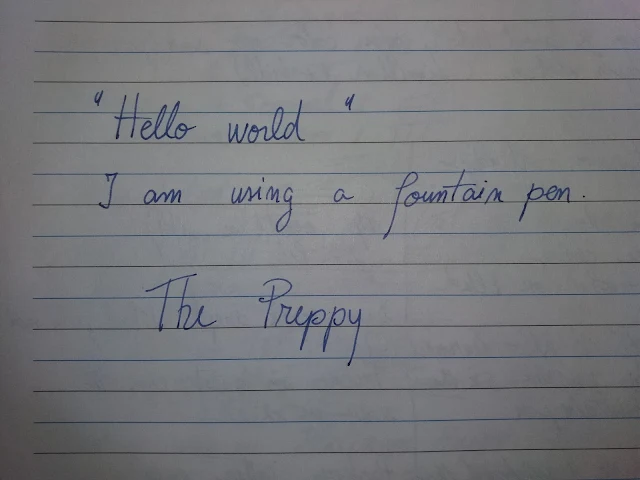 "Hello world"
I am using a fountain pen.
The Preppy